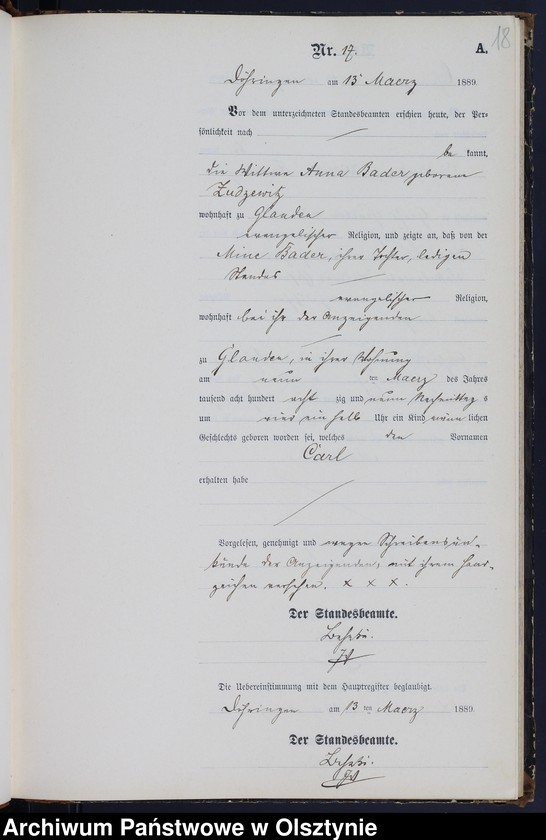 18
Nr. 17. A.
Döhringen am 13 Maerz 1889.
Vor dem unterzeichneten Standesbeamten erschien heute, der Per-
sönlichkeit nach
be kannt,
die Wittwe Anna Bader geborene
Ludzewitz
wohnhaft zu Glanden
evangelischer Religion, und zeigte an, daß von der
Mine Bader, ihrer Tochter, ledigen
Standes
evangelischer Religion,
wohnhaft bei ihr der Anzeigenden
zu Glanden, in ihrer Wohnung
am neun ten Maerz des Jahres
tausend acht hundert acht zig und neun Nachmittags
um vier ein halb Uhr ein Kind männ lichen
Geschlechts geboren worden sei, welches den Vornamen
Carl
erhalten habe
Vorgelesen, genehmigt und wegen Schreibensun-
kunde der Anzeigenden, mit ihrem Hand-
zeichen versehen. x x x.
Der Standesbeamte.
Die Uebereinstimmung mit dem Hauptregister beglaubigt.
Döhringen am 13 ten Maerz 1889.
Der Standesbeamte.
Archiwum Państwowe w Olsztynie